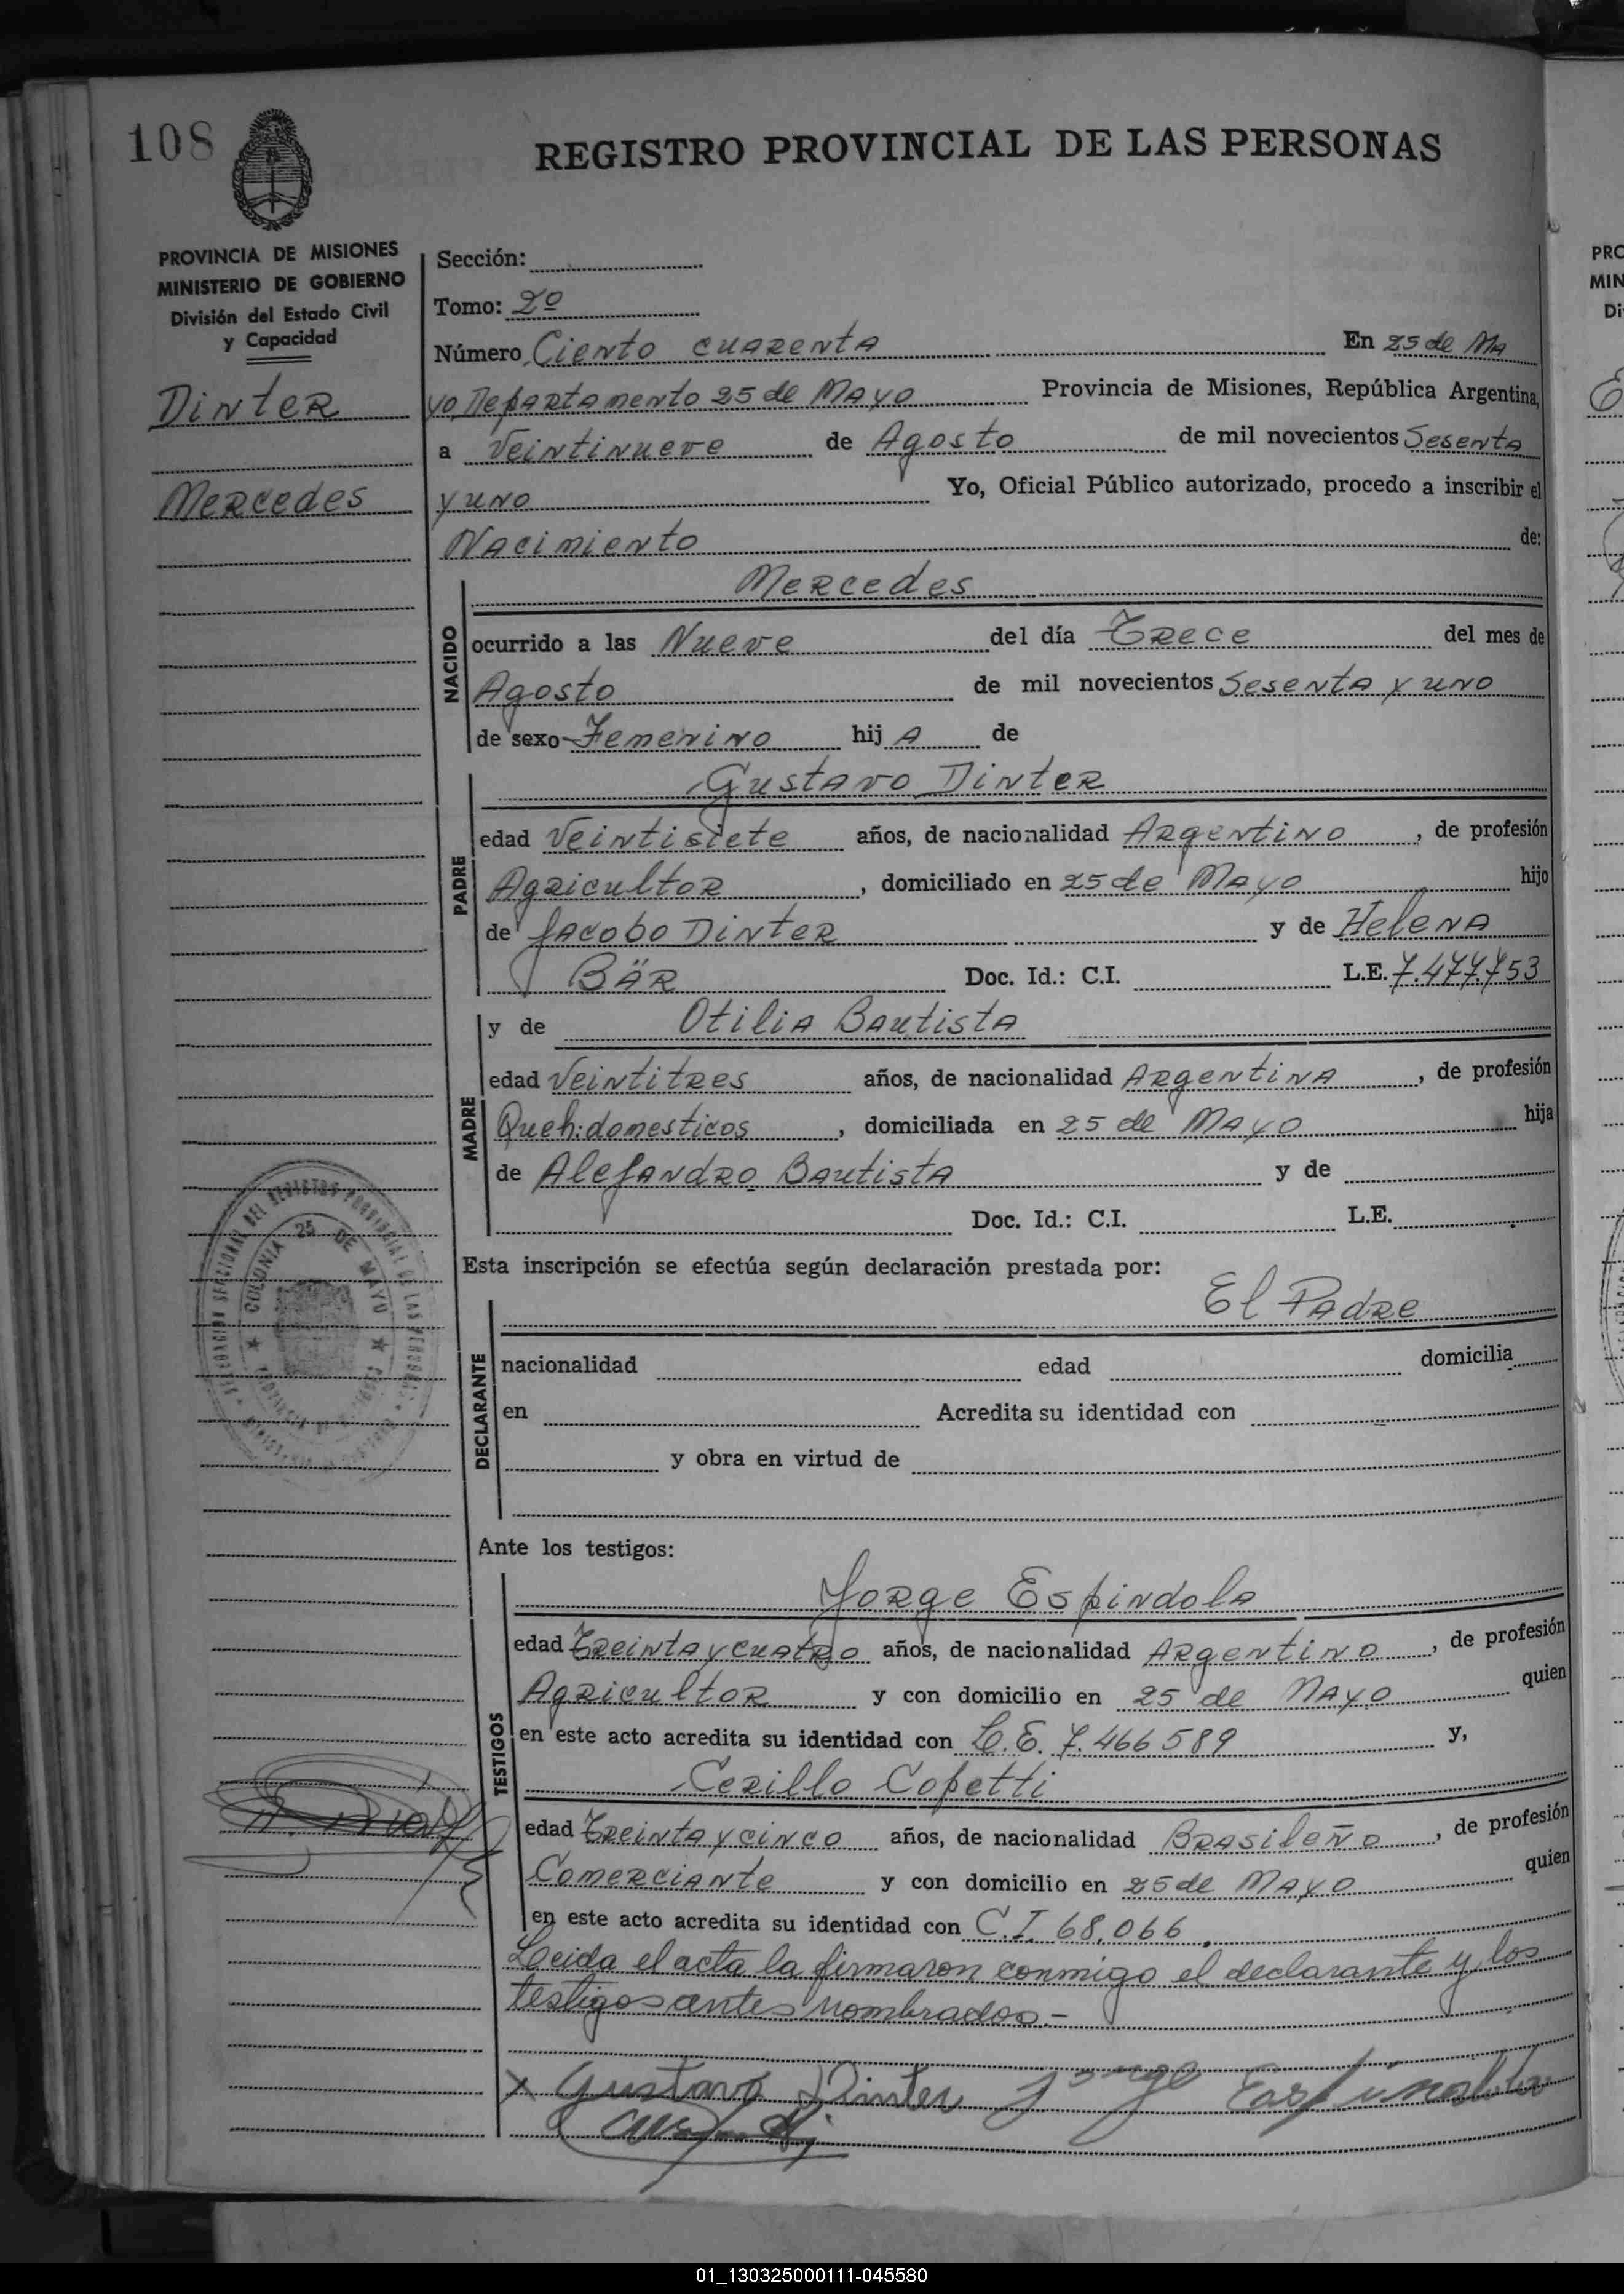 108
REGISTRO PROVINCIAL DE LAS PERSONAS
PROVINCIA DE MISIONES
MINISTERIO DE GOBIERNO
División del Estado Civil
y Capacidad
Dinter
Mercedes
Sección:
Tomo: 2º
Número Ciento cuarenta En 25 de Ma
yo, Departamento 25 de Mayo Provincia de Misiones, República Argentina,
a Veintinueve de Agosto de mil novecientos Sesenta
y uno Yo, Oficial Público autorizado, procedo a inscribir el
Nacimiento de:
NACIDO
Mercedes
ocurrido a las Nueve del día Trece del mes de
Agosto de mil novecientos Sesenta y uno
de sexo Femenino hij A de
PADRE
Gustavo Dinter
edad Veintisiete años, de nacionalidad Argentino, de profesión
Agricultor, domiciliado en 25 de Mayo hijo
de Jacobo Dinter y de Helena
Bär Doc. Id.: C.I. L.E. 7.477.753
MADRE
y de Otilia Bautista
edad Veintitres años, de nacionalidad Argentina, de profesión
Queh: domesticos, domiciliada en 25 de Mayo hija
de Alejandro Bautista y de
Doc. Id.: C.I. L.E.
COLONIA 25 DE MAYO
Esta inscripción se efectúa según declaración prestada por:
DECLARANTE
El Padre
nacionalidad edad domicilia
en Acredita su identidad con
y obra en virtud de
Ante los testigos:
TESTIGOS
Jorge Espindola
edad Treinta y cuatro años, de nacionalidad Argentino, de profesión
Agricultor y con domicilio en 25 de Mayo quien
en este acto acredita su identidad con L.E. 7.466589 y,
Cerillo Copetti
edad Treinta y cinco años, de nacionalidad Brasileño, de profesión
Comerciante y con domicilio en 25 de Mayo quien
en este acto acredita su identidad con C.I. 68.066.
Leida el acta la firmaron conmigo el declarante y los
testigos antes nombrados.-
x Gustavo Dinter Jorge Espindola
01_130325000111-045580